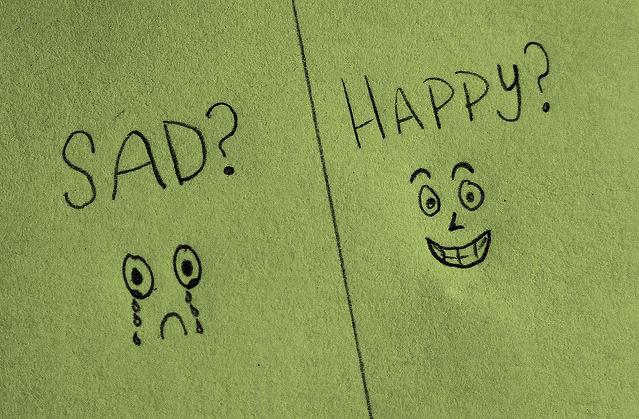 SAD?
HAPPY?